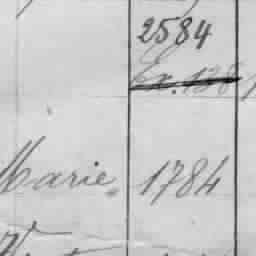 2584
Ex. 128
Marie. 1784